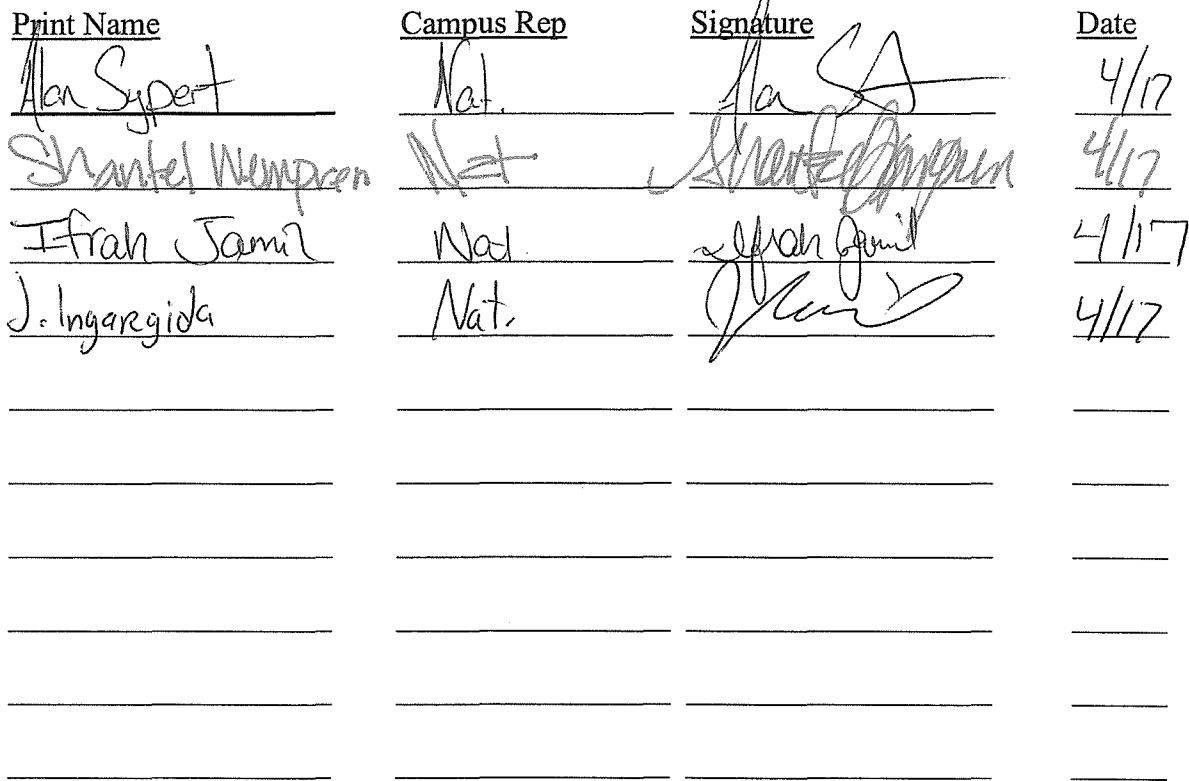 Print Name Campus Rep Signature Date
Alan Sypert Nat. Alan S 4/17
Shantel Wempren Nat Shantel Wempren 4/17
Ifrah Jamil Nat Ifrah Jamil 4/17
J. Ingargida Nat. 4/17